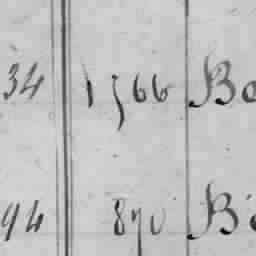 34 1566 Be
94 870 Be